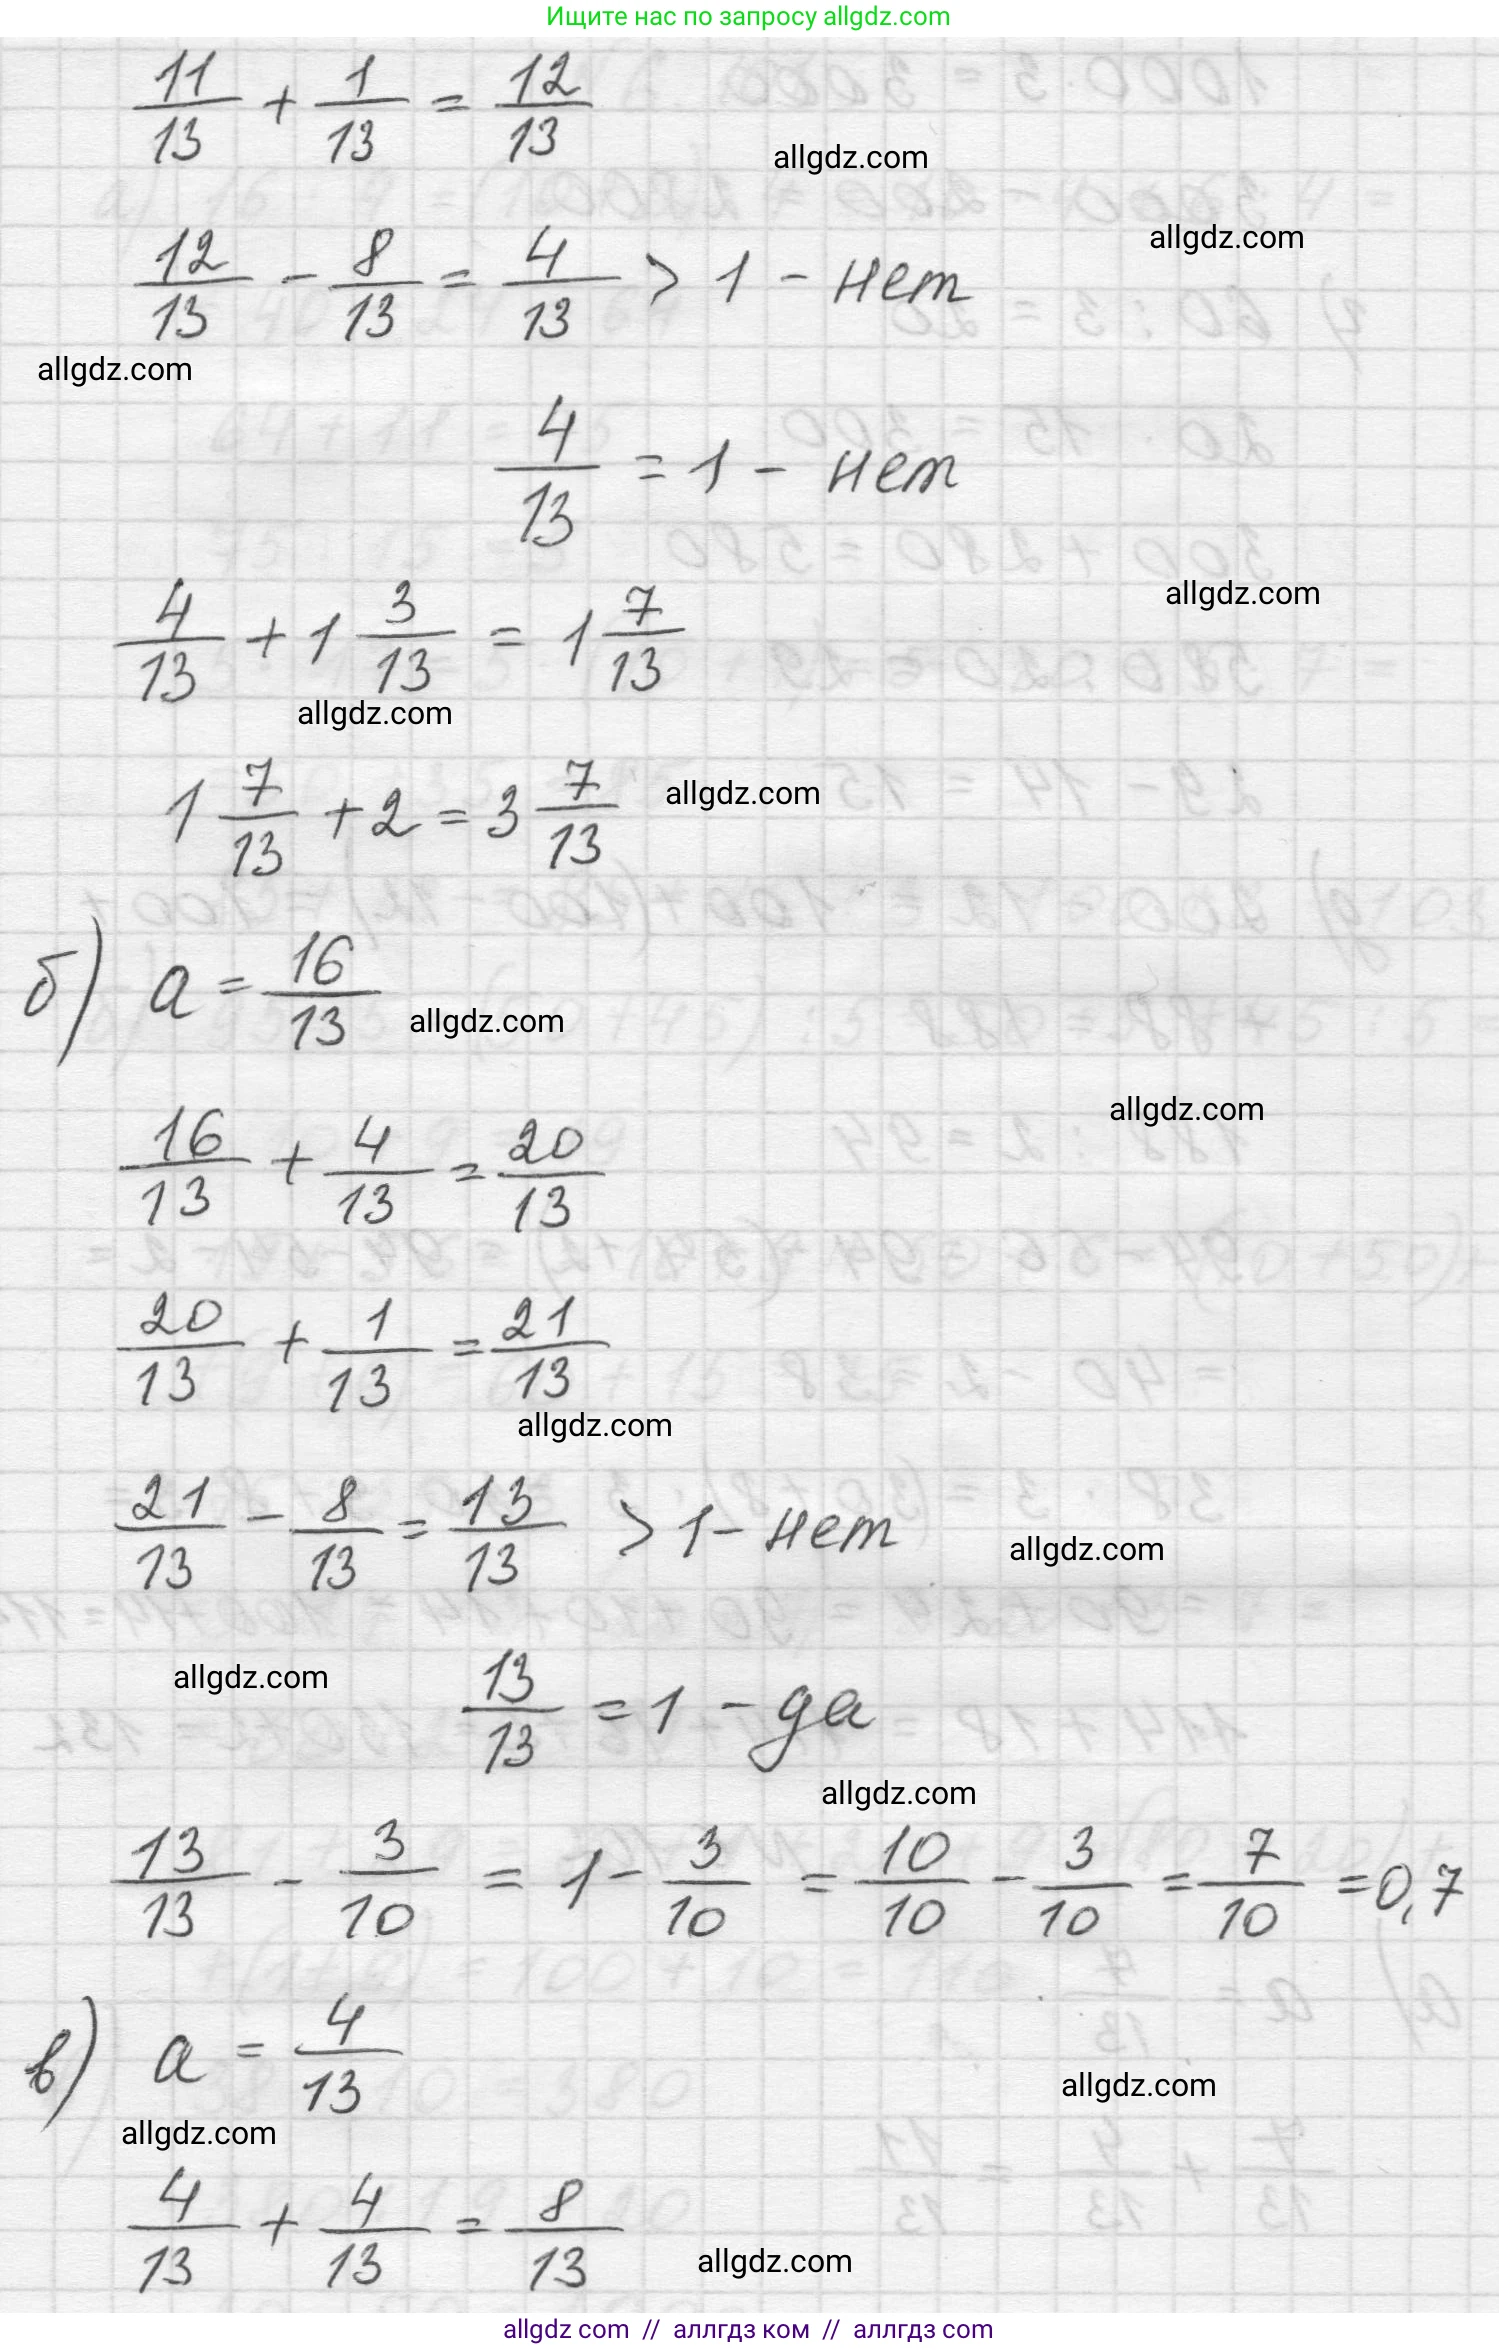 Ищите нас по запросу allgdz.com
11/13 + 1/13 = 12/13
allgdz.com
allgdz.com
12/13 - 8/13 = 4/13 > 1 - нет
allgdz.com
4/13 = 1 - нет
allgdz.com
4/13 + 1 3/13 = 1 7/13
allgdz.com
1 7/13 + 2 = 3 7/13
allgdz.com
б) a = 16/13
allgdz.com
allgdz.com
16/13 + 4/13 = 20/13
20/13 + 1/13 = 21/13
allgdz.com
21/13 - 8/13 = 13/13 > 1 - нет
allgdz.com
allgdz.com
13/13 = 1 - да
allgdz.com
13/13 - 3/10 = 1 - 3/10 = 10/10 - 3/10 = 7/10 = 0,7
в) a = 4/13
allgdz.com
allgdz.com
4/13 + 4/13 = 8/13
allgdz.com
allgdz com // аллгдз ком // аллгдз com